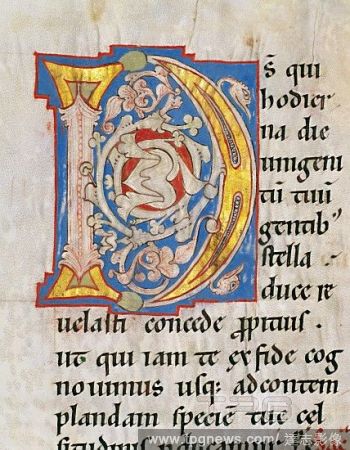 D
s̄ qui
hodier
na die
unigeni
tū tuū
gentib᾽
stella
duce re
uelasti concede ꝓpitius .
ut qui iam te ex fide cog
nouimus usq; ad contem
plandam speciē tue cel
situdinis
www.tpgnews.com/達志影像